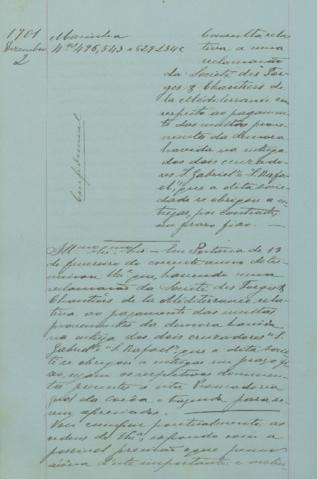 1901
Dezembro
2
Marinha
Nos 495, 543 e 529 234 C
Confidencial
Consulta rela-
tiva a uma
reclamação
da Societé des For-
ges & Chantiers de
la Méditerranée com
respeito ao pagamen-
to das multas prove-
nientes da demora
havida na entrega
dos dois cruzado-
res S. Gabriel e S. Rafa-
el, que a dita socie-
dade se obrigou a en-
tregar, por contracto,
em prazo fixo.
Em Portaria de 13
de fevereiro do corrente anno deter-
minou V. Exa. que, havendo uma
reclamação da Societé des Forges &
Chantiers de la Méditerranée, rela-
tiva ao pagamento das multas
provenientes da demora havida
na entrega dos dois cruzadores "S.
Gabriel" e "S. Rafael", que a dita socie-
de se obrigou a entregar em prazo
fixo, sejam os respectivos documen-
tos presentes a esta Procuradoria
Geral da Corôa e Fazenda para se-
rem apreciados.
Vou cumprir pontualmente as
ordens de V. Exa., expondo com a
possivel precisão o que penso
ácerca d'este importante e